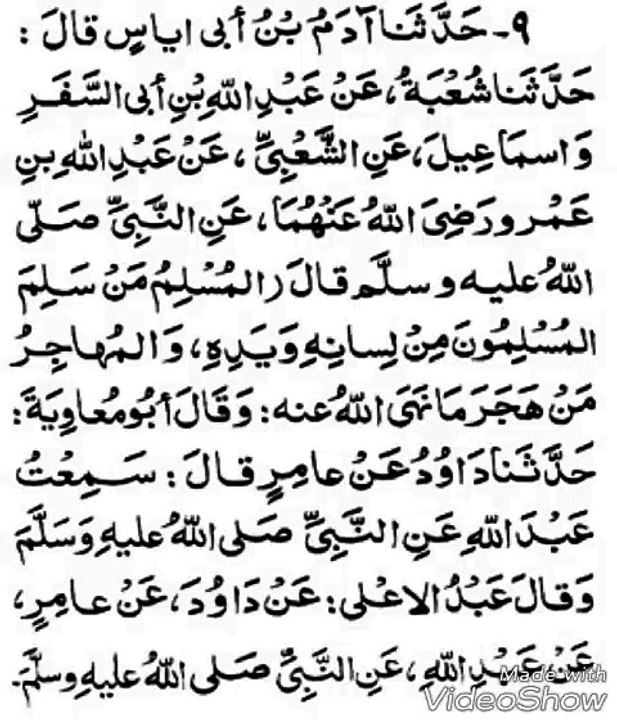 ٩- حَدَّثَنَا آدَمُ بْنُ أَبِى اياسٍ قالَ :
حَدَّثَنَا شُعْبَةُ، عَنْ عَبْدِ اللهِ بْنِ أَبِى السَّفَرِ
وَاسمَاعِيلَ، عَنِ الشَّعْبِىِّ، عَنْ عَبْدِ اللهِ بنِ
عَمْرو رَضِىَ اللهُ عَنْهُمَا، عَنِ النَّبِىِّ صَلّى
اللهُ عليه وسلَّم قالَ: المُسْلِمُ مَنْ سَلِمَ
المُسْلِمُونَ مِنْ لِسانِهِ وَيَدِهِ، وَالمُهاجِرُ
مَنْ هَجَرَ مَا نَهَى اللهُ عنه: وَقَالَ أبُو مُعاوِيَةَ:
حَدَّثَنَا دَاوُدُ عَنْ عامِرٍ قالَ: سَمِعْتُ
عَبْدَ اللهِ عَنِ النَّبِىِّ صَلى اللهُ عليهِ وَسَلَّمَ
وَقالَ عَبْدُ الاعْلى: عَنْ دَاوُدَ، عَنْ عامِرٍ،
عَنْ عَبْدِ اللهِ، عَنِ النَّبِىِّ صَلى اللهُ عليهِ وسلَّمَ.
Made with
VideoShow